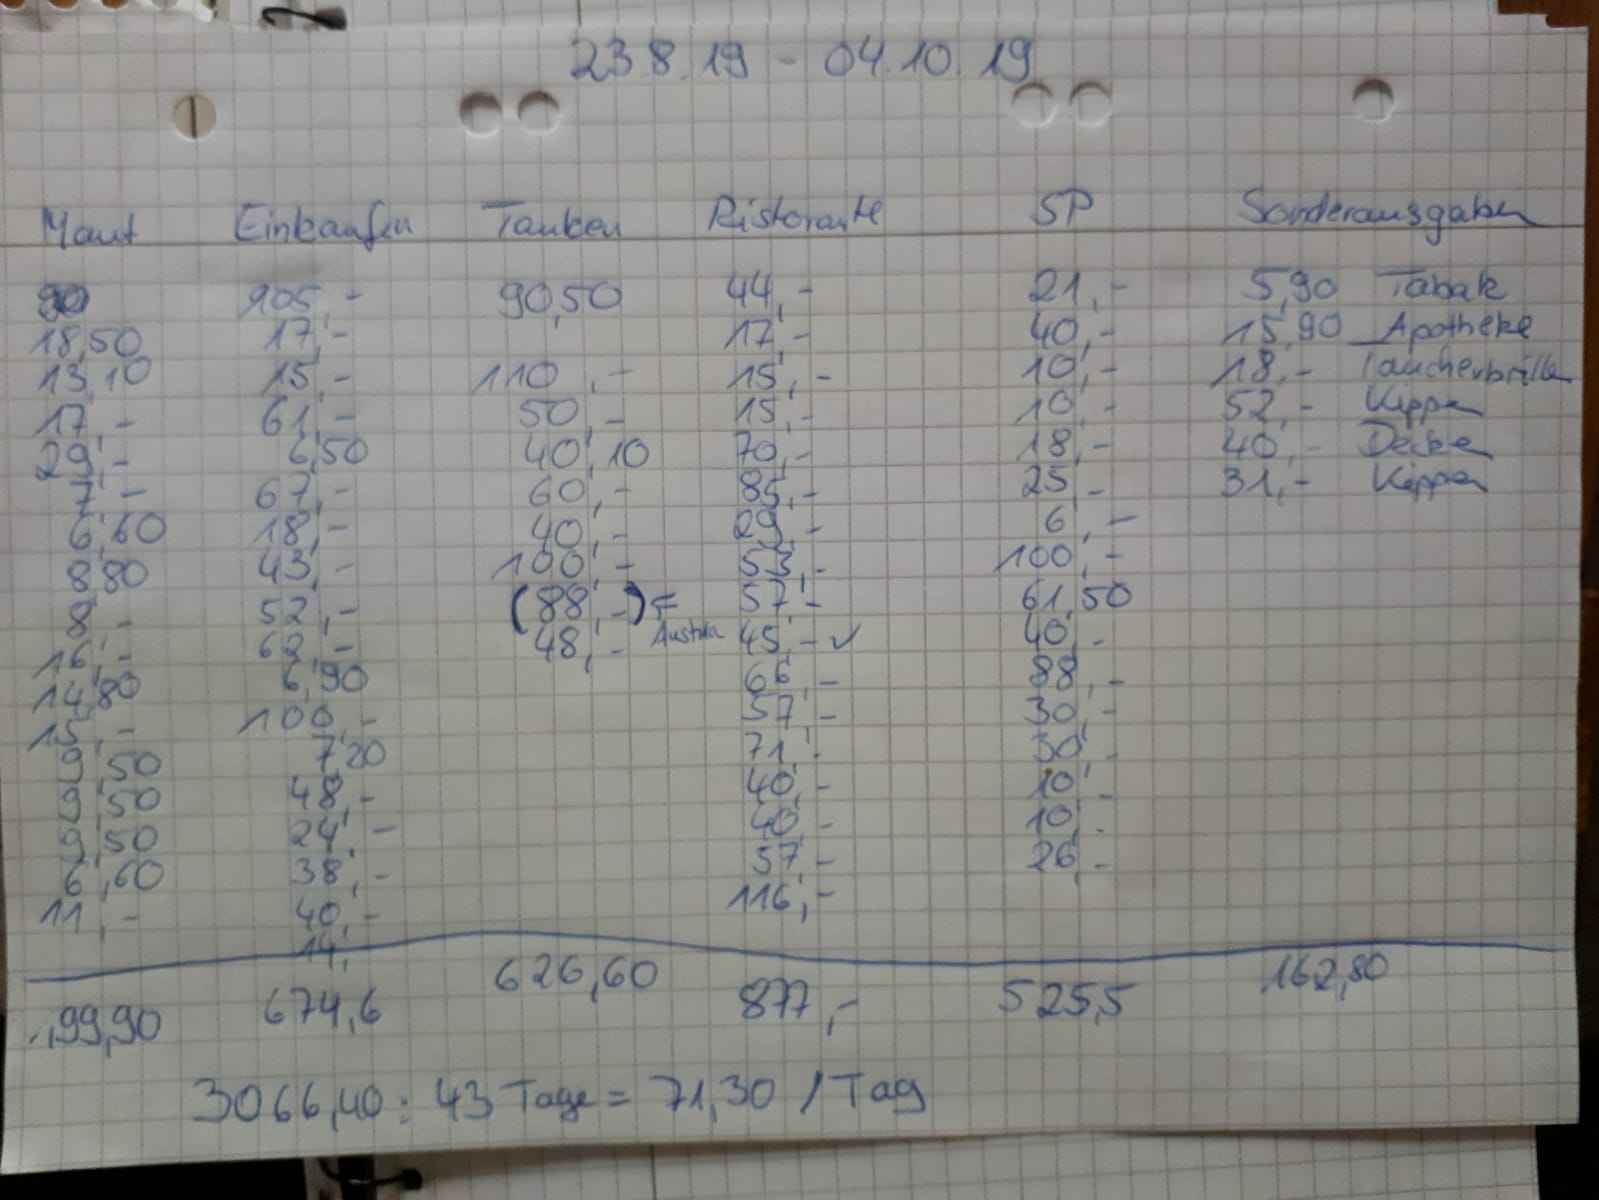 23.8.19 - 04.10.19
Maut Einkaufen Tanken Ristorante SP Sonderausgaben
105,- 90,50 44,- 21,- 5,90 Tabak
18,50 17,- 17,- 40,- 15,90 Apotheke
13,10 15,- 110,- 15,- 10,- 18,- Taucherbrille
17,- 61,- 50,- 15,- 10,- 52,- Kippen
29,- 6,50 40,10 70,- 18,- 40,- Decke
7,- 67,- 60,- 85,- 25,- 31,- Kippen
6,60 18,- 40,- 29,- 6,-
8,80 43,- 100,- 53,- 100,-
8,- 52,- (88,-) 57,- 61,50
16,- 62,- 48,- Austria 45,- ✓ 40,-
14,80 6,90 66,- 88,-
15,- 100,- 57,- 30,-
9,50 7,20 71,- 30,-
9,50 48,- 40,- 10,-
9,50 24,- 40,- 10,-
6,60 38,- 57,- 26,-
11,- 40,- 116,-
14,
199,90 674,6 626,60 877,- 525,5 162,80
3066,40 : 43 Tage = 71,30 / Tag